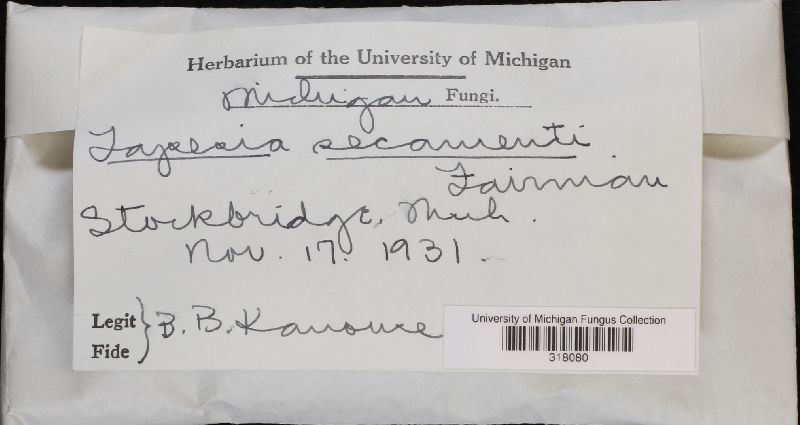 Herbarium of the University of Michigan
Michigan Fungi.
Tapesia secamenti
Fairman
Stockbridge, Mich.
Nov. 17. 1931.
Legit } B. B. Kanouse
Fide
University of Michigan Fungus Collection
318080